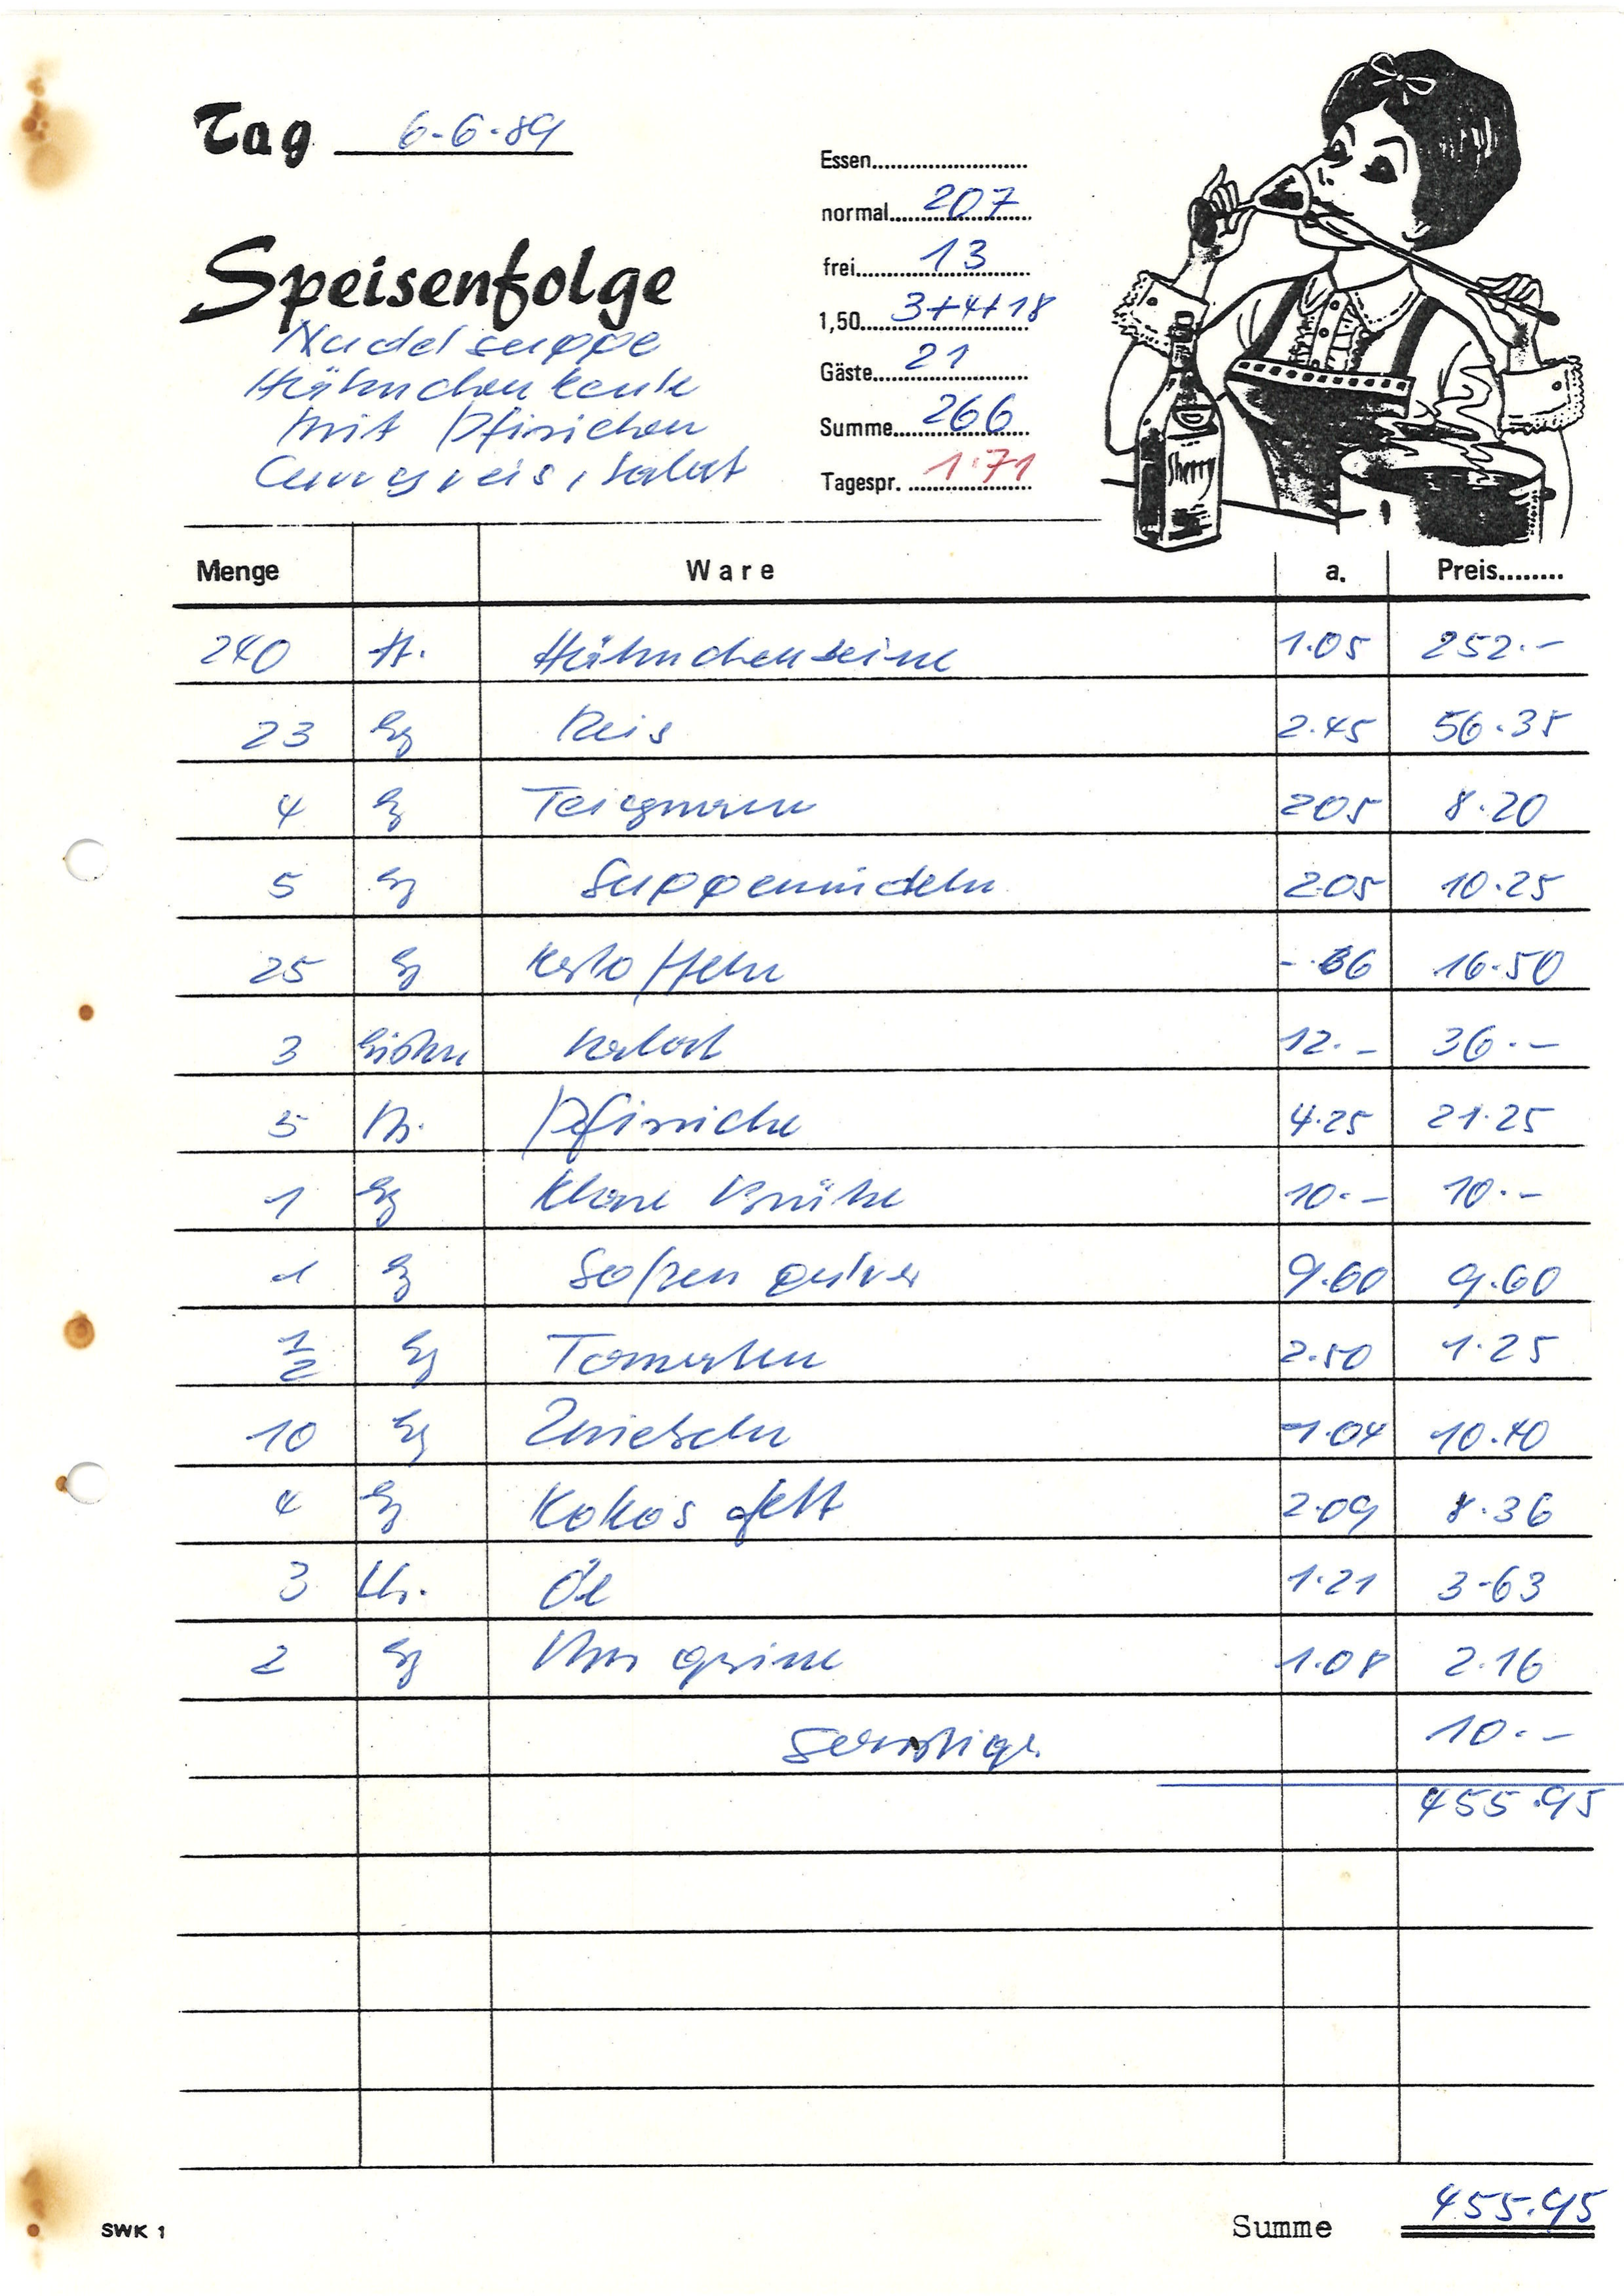 Tag 6-6-89
Essen
normal 207
frei 13
1,50 3+4+18
Gäste 21
Summe 266
Tagespr. 1.71
Speisenfolge
Nudelsuppe
Hähnchenkeule
mit Pfirsichen
Curryreis, Salat
Sherry
Menge Ware a. Preis
240 St. Hähnchenbeine 1.05 252.-
23 kg Reis 2.45 56.35
4 kg 205 8.20
5 kg Suppennudeln 2.05 10.25
25 kg Kartoffeln -.66 16.50
3 Salat 12.- 36.-
5 Ds. Pfirsiche 4.25 21.25
1 kg Klare Brühe 10.- 10.-
1 kg Soßenpulver 9.60 9.60
1/2 kg Tomaten 2.50 1.25
10 kg Zwiebeln 1.04 10.40
4 kg Kokosfett 2.09 8.36
3 Ltr. Öl 1.21 3-63
2 kg 1.08 2.16
Sonstiges 10.-
455.95
Summe 455.95
SWK 1